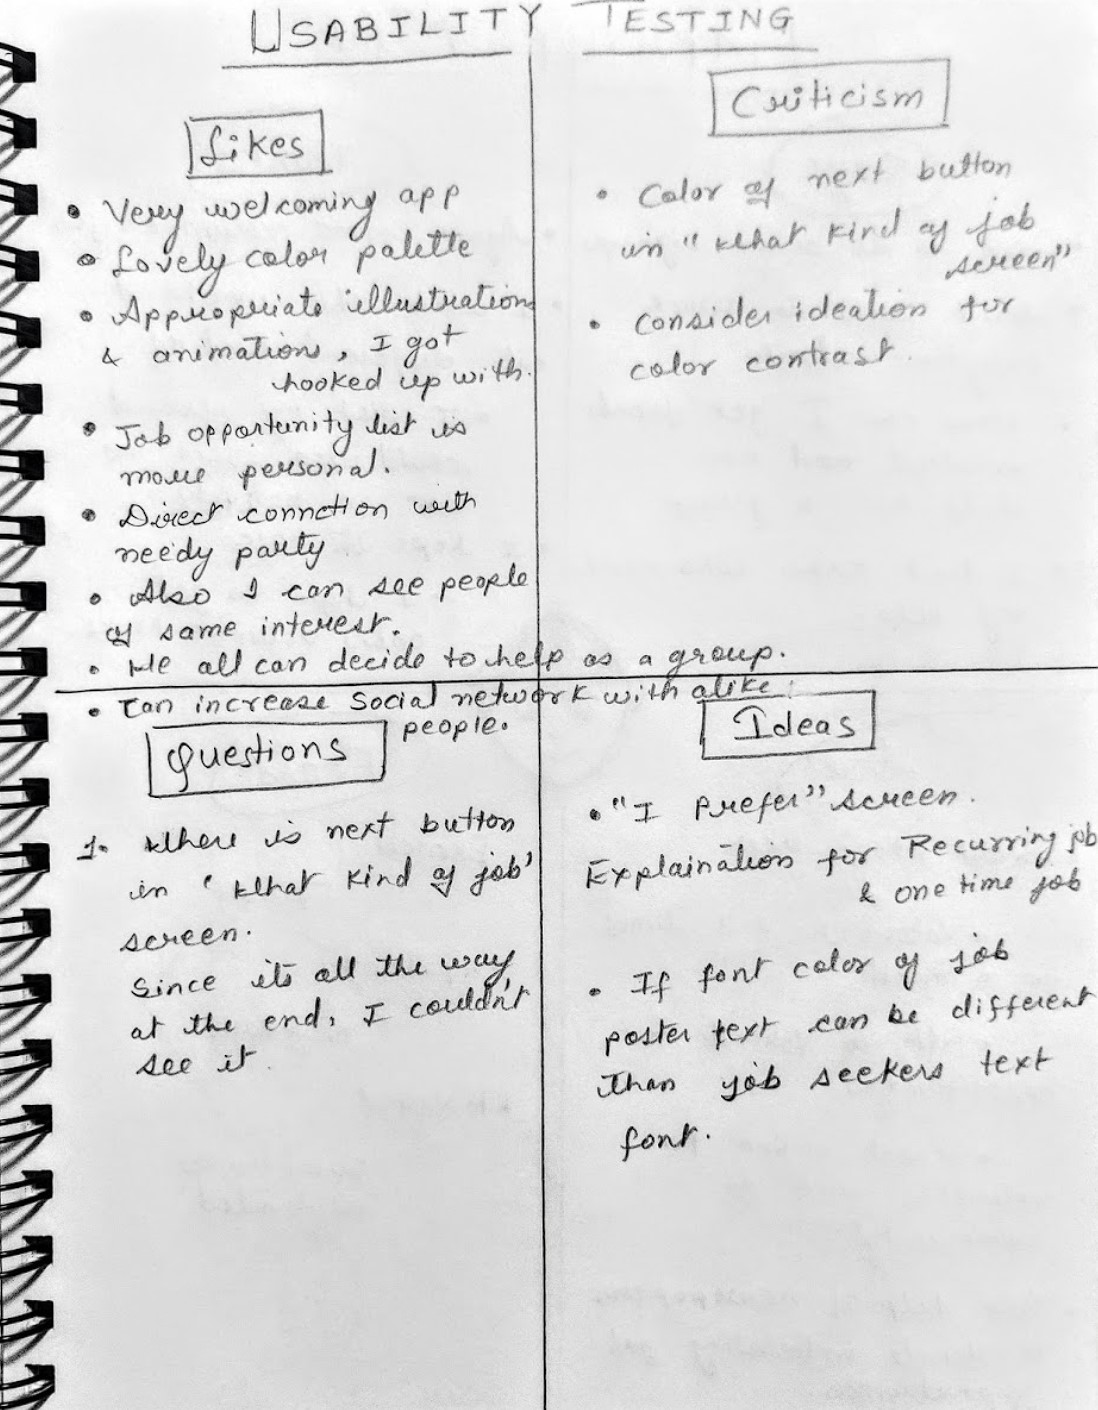 USABILITY TESTING
Likes
• Very welcoming app
• Lovely color palette
• Appropriate illustrations
& animations, I got
hooked up with.
• Job opportunity list is
more personal.
• Direct connction with
needy party
• Also I can see people
of same interest.
• We all can decide to help as a group.
• Can increase social network with alike
people.
Criticism
• Color of next button
in "What kind of job
screen"
• Consider ideation for
color contrast.
Questions
1. Where is next button
in 'What kind of job'
screen.
Since its all the way
at the end, I couldn't
see it.
Ideas
• "I Prefer" screen.
Explaination for Recurring job
& one time job
• If font color of job
poster text can be different
than job seekers text
font.